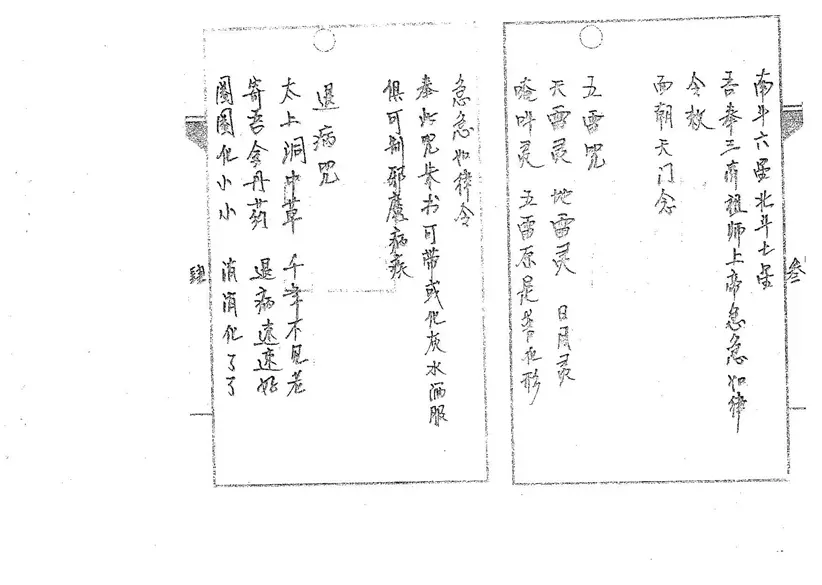 南斗六星北斗七星
吾奉三斉祖师上帝急急如律
令敕
面朝天门念
五雷咒
天雷灵 地雷灵 日月灵
唵吽灵 五雷原是 形
叁
急急如律令
奉此咒朱书可带或化灰水洒服
俱可制邪魔病疾
退病咒
太上洞中草 千年不见老
寄吾金丹药 退病速速好
圈圈化小小 消消化了了
肆